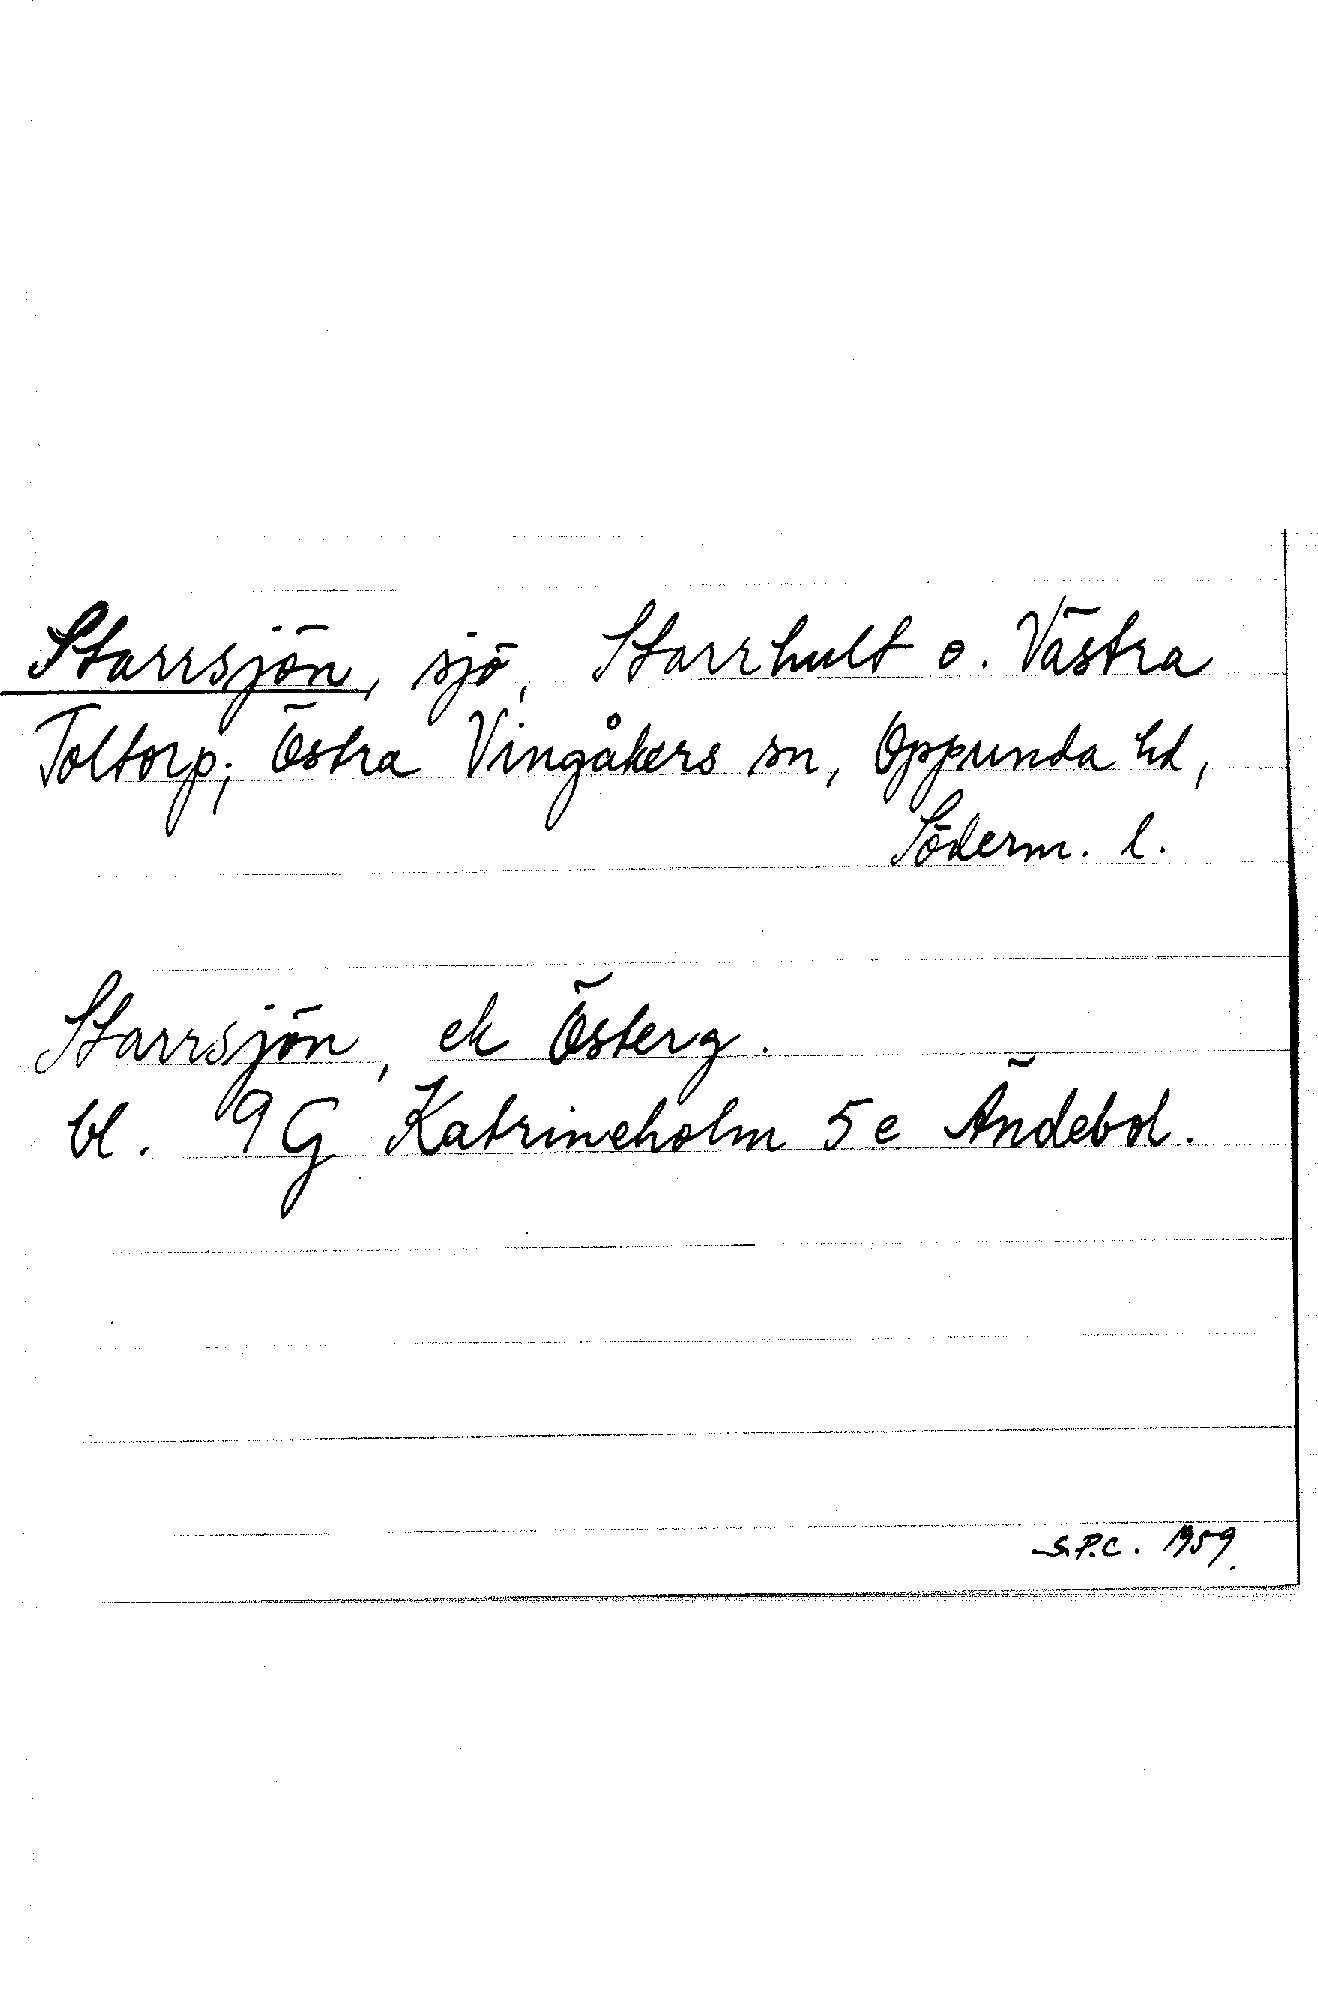 Starrsjön, sjö, Starrhult o. Västra
Toltorp; Östra Vingåkers sn, Oppunda hd,
Söderm. l.
Starrsjön, ek Österg.
bl. 9G Katrineholm 5e Ändebol.
S.P.C. 1959.